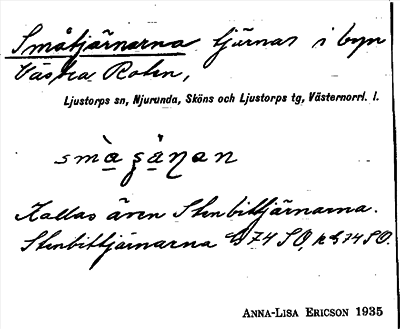 Småtjärnarna tjärnar i byn
Västra Rolen,
Ljustorps sn, Njurunda, Sköns och Ljustorps tg, Västernorrl. l.
Kallas även Stenbittjärnarna.
Stenbittjärnarna G74SO,
ANNA-LISA ERICSON 1935